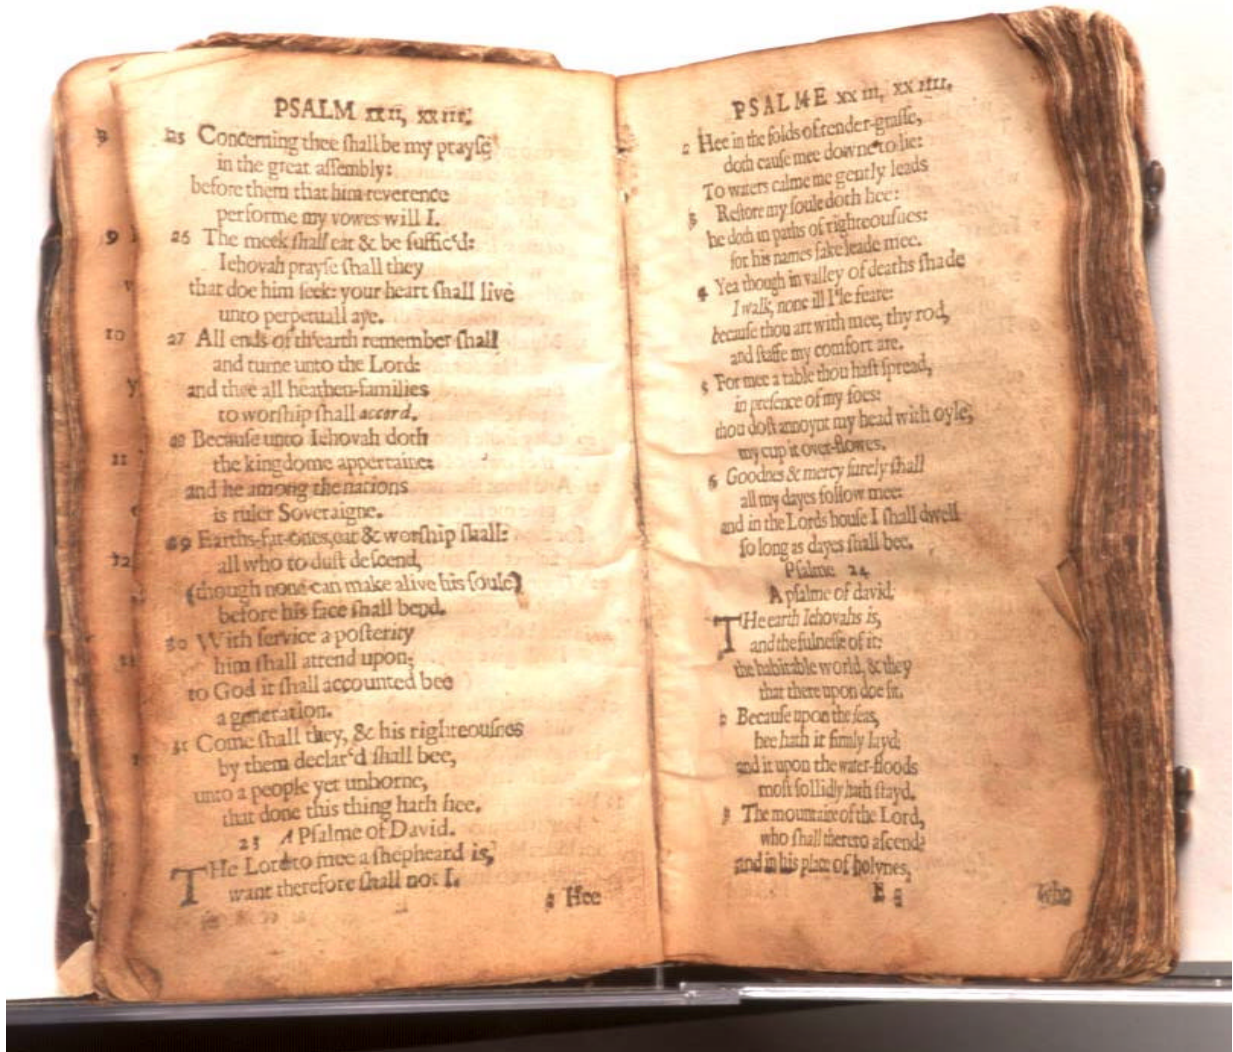 PSALM XXII, XXIII.
25 Concerning thee ſhall be my prayſe
in the great aſſembly:
before them that him reverence
performe my vowes will I.
26 The meek ſhall eat & be ſuffic'd:
Iehovah prayſe ſhall they
that doe him ſeek: your heart ſhall live
unto perpetuall aye.
27 All ends of th'earth remember ſhall
and turne unto the Lord:
and thee all heathen-families
to worſhip ſhall accord.
28 Becauſe unto Iehovah doth
the kingdome appertaine:
and he among the nations
is ruler Soveraigne.
29 Earths-fat-ones, eat & worſhip ſhall:
all who to duſt deſcend,
(though none can make alive his ſoule)
before his face ſhall bend.
30 With ſervice a poſterity
him ſhall attend upon;
to God it ſhall accounted bee
a generation.
31 Come ſhall they, & his righteouſnes
by them declar'd ſhall bee,
unto a people yet unborne,
that done this thing hath hee.
23 A Pſalme of David.
THe Lord to mee a ſhepheard is,
want therefore ſhall not I.
2 Hee
PSALME XXIII, XXIIII.
2 Hee in the folds of tender-graſſe,
doth cauſe mee downe to lie:
To waters calme me gently leads
3 Reſtore my ſoule doth hee:
he doth in paths of righteouſnes:
for his names ſake leade mee.
4 Yea though in valley of deaths ſhade
I walk, none ill I'le feare:
becauſe thou art with mee, thy rod,
and ſtaffe my comfort are.
5 For mee a table thou haſt ſpread,
in preſence of my foes:
thou doſt annoynt my head with oyle,
my cup it over-flowes.
6 Goodnes & mercy ſurely ſhall
all my dayes follow mee:
and in the Lords houſe I ſhall dwell
ſo long as dayes ſhall bee.
Pſalme 24
A pſalme of david.
THe earth Iehovahs is,
and the fulneſſe of it:
the habitable world, & they
that there upon doe ſit.
2 Becauſe upon the ſeas,
hee hath it firmly layd:
and it upon the water-floods
moſt ſollidly hath ſtayd.
3 The mountaine of the Lord,
who ſhall thereto aſcend?
and in his place of holynes,
E
Who
9
9
10
11
12